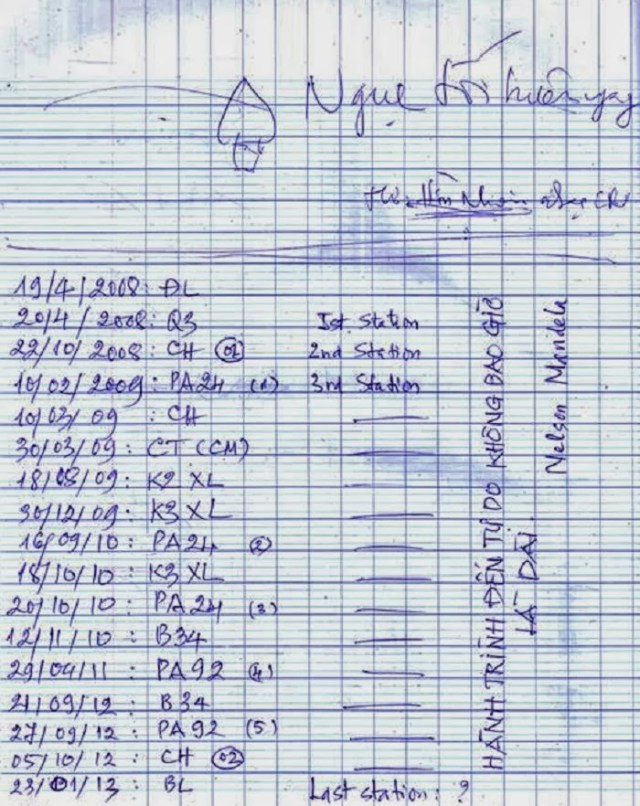 Ngục
Hôn Nhân
19/4/2008: ĐL
20/4/2008: Q3 Ist. Station
22/10/2008: CH (01) 2nd Station
10/02/2009: PA24 (1) 3rd Station
10/03/09 : CH
30/03/09: CT (CM)
18/08/09: K2 XL
30/12/09: K3 XL
16/09/10: PA24 (2)
18/10/10: K3 XL
20/10/10: PA24 (3)
12/11/10: B34
29/04/11: PA92 (4)
21/09/12: B34
27/09/12: PA92 (5)
05/10/12: CH (02)
23/01/13: BL Last station: ?
HÀNH TRÌNH ĐẾN TỰ DO KHÔNG BAO GIỜ
LÀ DÀI.
Nelson Mandela